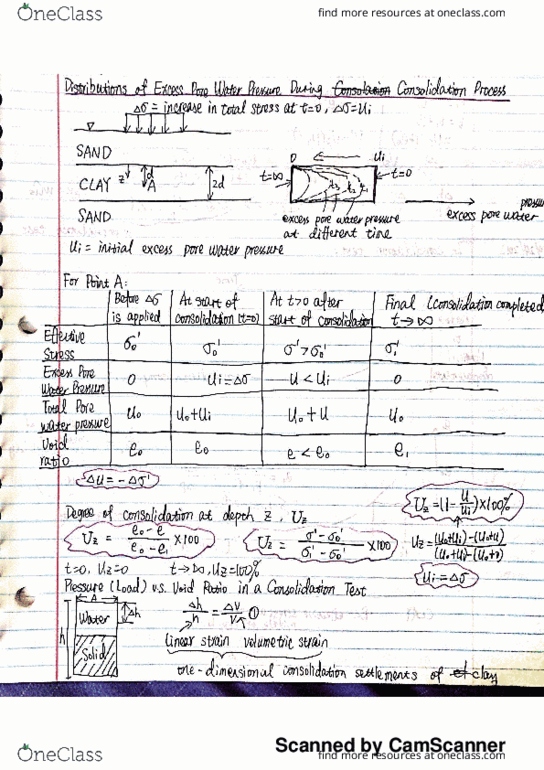 OneClass
find more resources at oneclass.com
Distributions of Excess Pore Water Pressure During Consolation Consolidation Process
Δσ = increase in total stress at t=0, Δσ=Ui
SAND
CLAY z d A 2d
SAND
0 Ui
t=∞ t=0
excess pore water pressure
at different time
pressu
excess pore water
Ui = initial excess pore water pressure
For Point A:
Before Δσ is applied
At start of consolidation (t=0)
At t>0 after start of consolidation
Final (consolidation completed) t→∞
Effective Stress σ₀' σ₀' σ'>σ₀' σ₁'
Excess Pore Water Pressure 0 Ui=Δσ U<Ui 0
Total Pore water pressure U₀ U₀+Ui U₀+U U₀
Void ratio e₀ e₀ e<e₀ e₁
ΔU=-Δσ'
Uz=(1-U/Ui)×100%
Degree of consolidation at depth z, Uz
Uz = (e₀-e)/(e₀-e₁) ×100
Uz = (σ'-σ₀')/(σ₁'-σ₀') ×100
Uz=((U₀+Ui)-(U₀+U))/((U₀+Ui)-(U₀+0))
t=0, Uz=0 t→∞, Uz=100%
Ui=Δσ
Pressure (Load) v.s. Void Ratio in a Consolidation Test
A
h Water Δh
Solid
Δh/h = ΔV/V ①
linear strain volumetric strain
one-dimensional consolidation settlements of clay
Scanned by CamScanner
OneClass
find more resources at oneclass.com